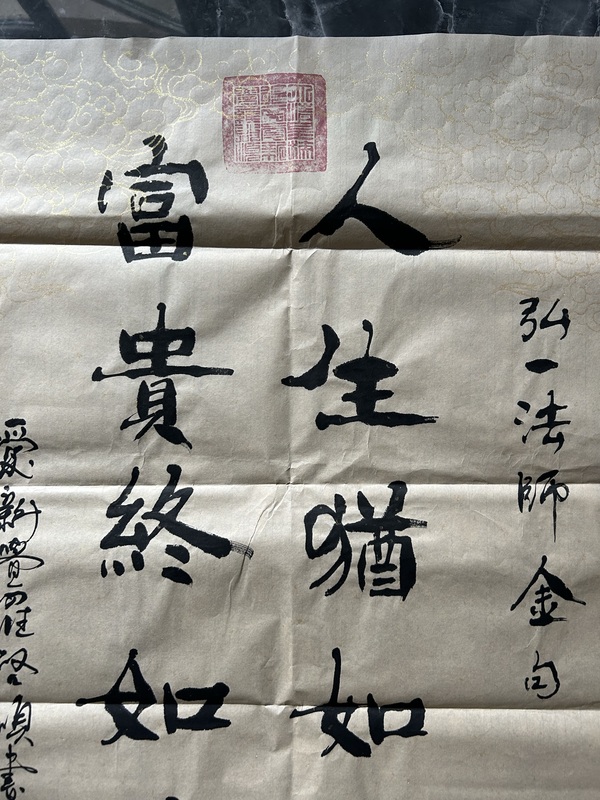 弘一法師金句
人生猶如
富貴終如
愛新覺羅啓頌書